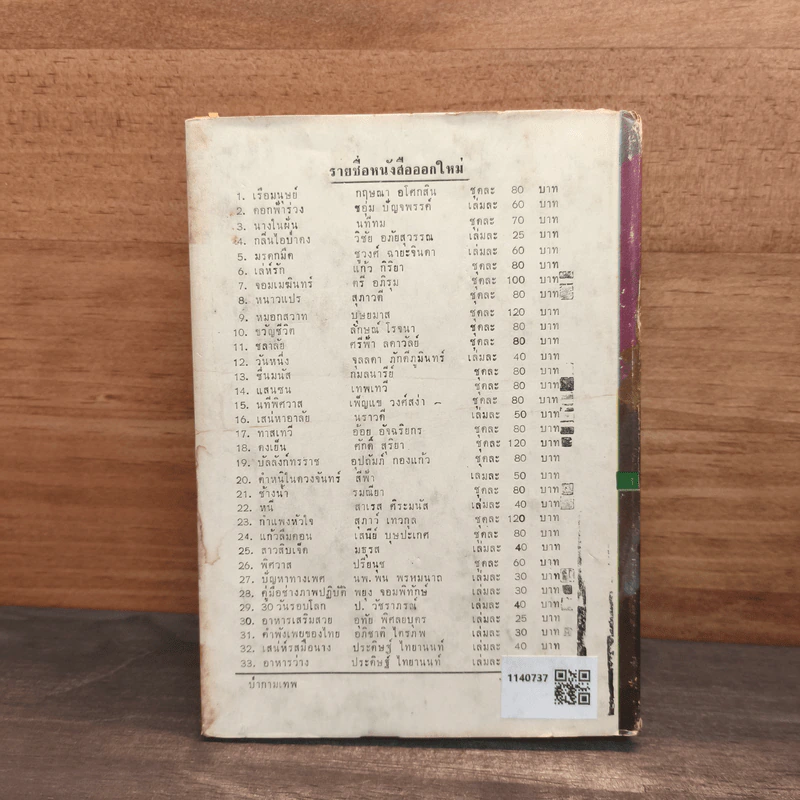 รายชื่อหนังสือออกใหม่
1. เรือมนุษย์ กฤษณา อโศกสิน ชุดละ 80 บาท
2. ดอกฟ้าร่วง ชอุ่ม ปัญจพรรค์ เล่มละ 60 บาท
3. นางในฝัน นทีทม ชุดละ 70 บาท
4. กลิ่นไอป่าดง วิชัย อภัยสุวรรณ เล่มละ 25 บาท
5. มรดกมืด ชูวงศ์ ฉายะจินดา เล่มละ 60 บาท
6. เล่ห์รัก แก้ว กิริยา ชุดละ 80 บาท
7. จอมเมฆินทร์ ตรี อภิรุม ชุดละ 100 บาท
8. หนาวแปร สุภาวดี ชุดละ 80 บาท
9. หมอกสวาท บุษยมาส ชุดละ 120 บาท
10. ขวัญชีวิต ลักษณ์ โรจนา ชุดละ 80 บาท
11. ชลาลัย ศรีฟ้า ลดาวัลย์ ชุดละ 80 บาท
12. วันหนึ่ง จุลลดา ภักดีภูมินทร์ เล่มละ 40 บาท
13. ชื่นมนัส กมลนารีย์ ชุดละ 80 บาท
14. แสนซน เทพเทวี ชุดละ 80 บาท
15. นทีพิศวาส เพ็ญแข วงศ์สง่า ชุดละ 80 บาท
16. เสน่หาอาลัย นราวดี เล่มละ 50 บาท
17. ทาสเทวี อ้อย อัจฉริยกร ชุดละ 80 บาท
18. ดงเย็น ศักดิ์ สุริยา ชุดละ 120 บาท
19. บัลลังก์ทรราช อุปถัมภ์ กองแก้ว ชุดละ 80 บาท
20. ตำหนิในดวงจันทร์ สีฟ้า เล่มละ 50 บาท
21. ช้างน้ำ รมณียา ชุดละ 80 บาท
22. หนี สาเรส ศิระมนัส เล่มละ 40 บาท
23. กำแพงหัวใจ สุภาว์ เทวกุล ชุดละ 120 บาท
24. แก้วลืมคอน เสนีย์ บุษปะเกศ ชุดละ 80 บาท
25. สาวสิบเจ็ด มธุรส เล่มละ 40 บาท
26. พิศวาส ปรียนุช ชุดละ 60 บาท
27. ปัญหาทางเพศ นพ. พน พรหมนาถ เล่มละ 30 บาท
28. คู่มือช่างภาพปฏิบัติ พยุง จอมพิทักษ์ เล่มละ 30 บาท
29. 30 วันรอบโลก ป. วัชราภรณ์ เล่มละ 40 บาท
30. อาหารเสริมสวย อุทัย พิศลยบุตร เล่มละ 25 บาท
31. ตำพังเพยของไทย อภิชาติ ไตรภพ เล่มละ 30 บาท
32. เสน่ห์รสมือนาง ประดิษฐ์ ไทยานนท์ เล่มละ 40 บาท
33. อาหารว่าง ประดิษฐ์ ไทยานนท์ เล่มละ
บ่ากามเทพ
1140737